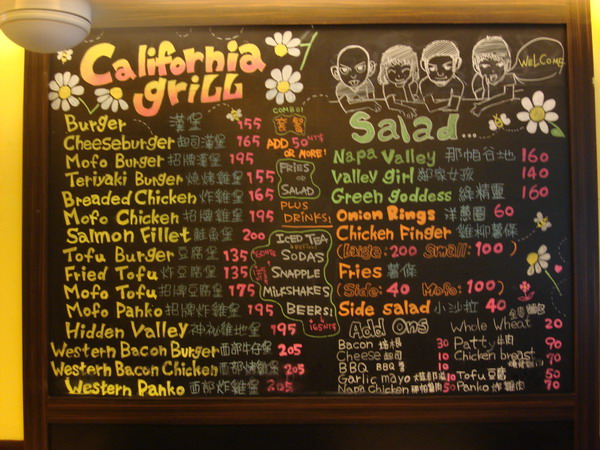 California
grill
WELCOME
Burger 漢堡 155
Cheeseburger 起司漢堡 165
Mofo Burger 招牌漢堡 195
Teriyaki Burger 燒烤雞堡 155
Breaded Chicken 炸雞堡 165
Mofo Chicken 招牌雞堡 195
Salmon Fillet 鮭魚堡 200
Tofu Burger 豆腐堡 135
Fried Tofu 炸豆腐堡 135
Mofo Tofu 招牌豆腐堡 175
Mofo Panko 招牌炸雞堡 195
Hidden Valley 神祕雞地堡 195
Western Bacon Burger 西部牛仔堡 205
Western Bacon Chicken 西部烤雞堡 205
Western Panko 西部炸雞堡 205
COMBO!
套餐
ADD 50NTS
OR MORE!
FRIES
OR
SALAD
PLUS
DRINKS!
ICED TEA
SODAS
SNAPPLE
MILKSHAKES
BEERS!
Salad...
Napa Valley 那帕谷地 160
Valley girl 鄰家女孩 140
Green goddess 綠精靈 160
Onion Rings 洋蔥圈 60
Chicken Finger 雞柳薯條
(Large: 200 Small: 100)
Fries 薯條
(Side: 40 Mofo: 100)
Side salad 小沙拉 40
Add Ons
Bacon 30
Cheese 起司 10
BBQ BBQ醬 10
Garlic mayo 10
Napa Chicken 50
Whole Wheat 20
Patty 牛肉 90
Chicken breast 70
Tofu 豆腐 50
Panko 炸雞肉 70